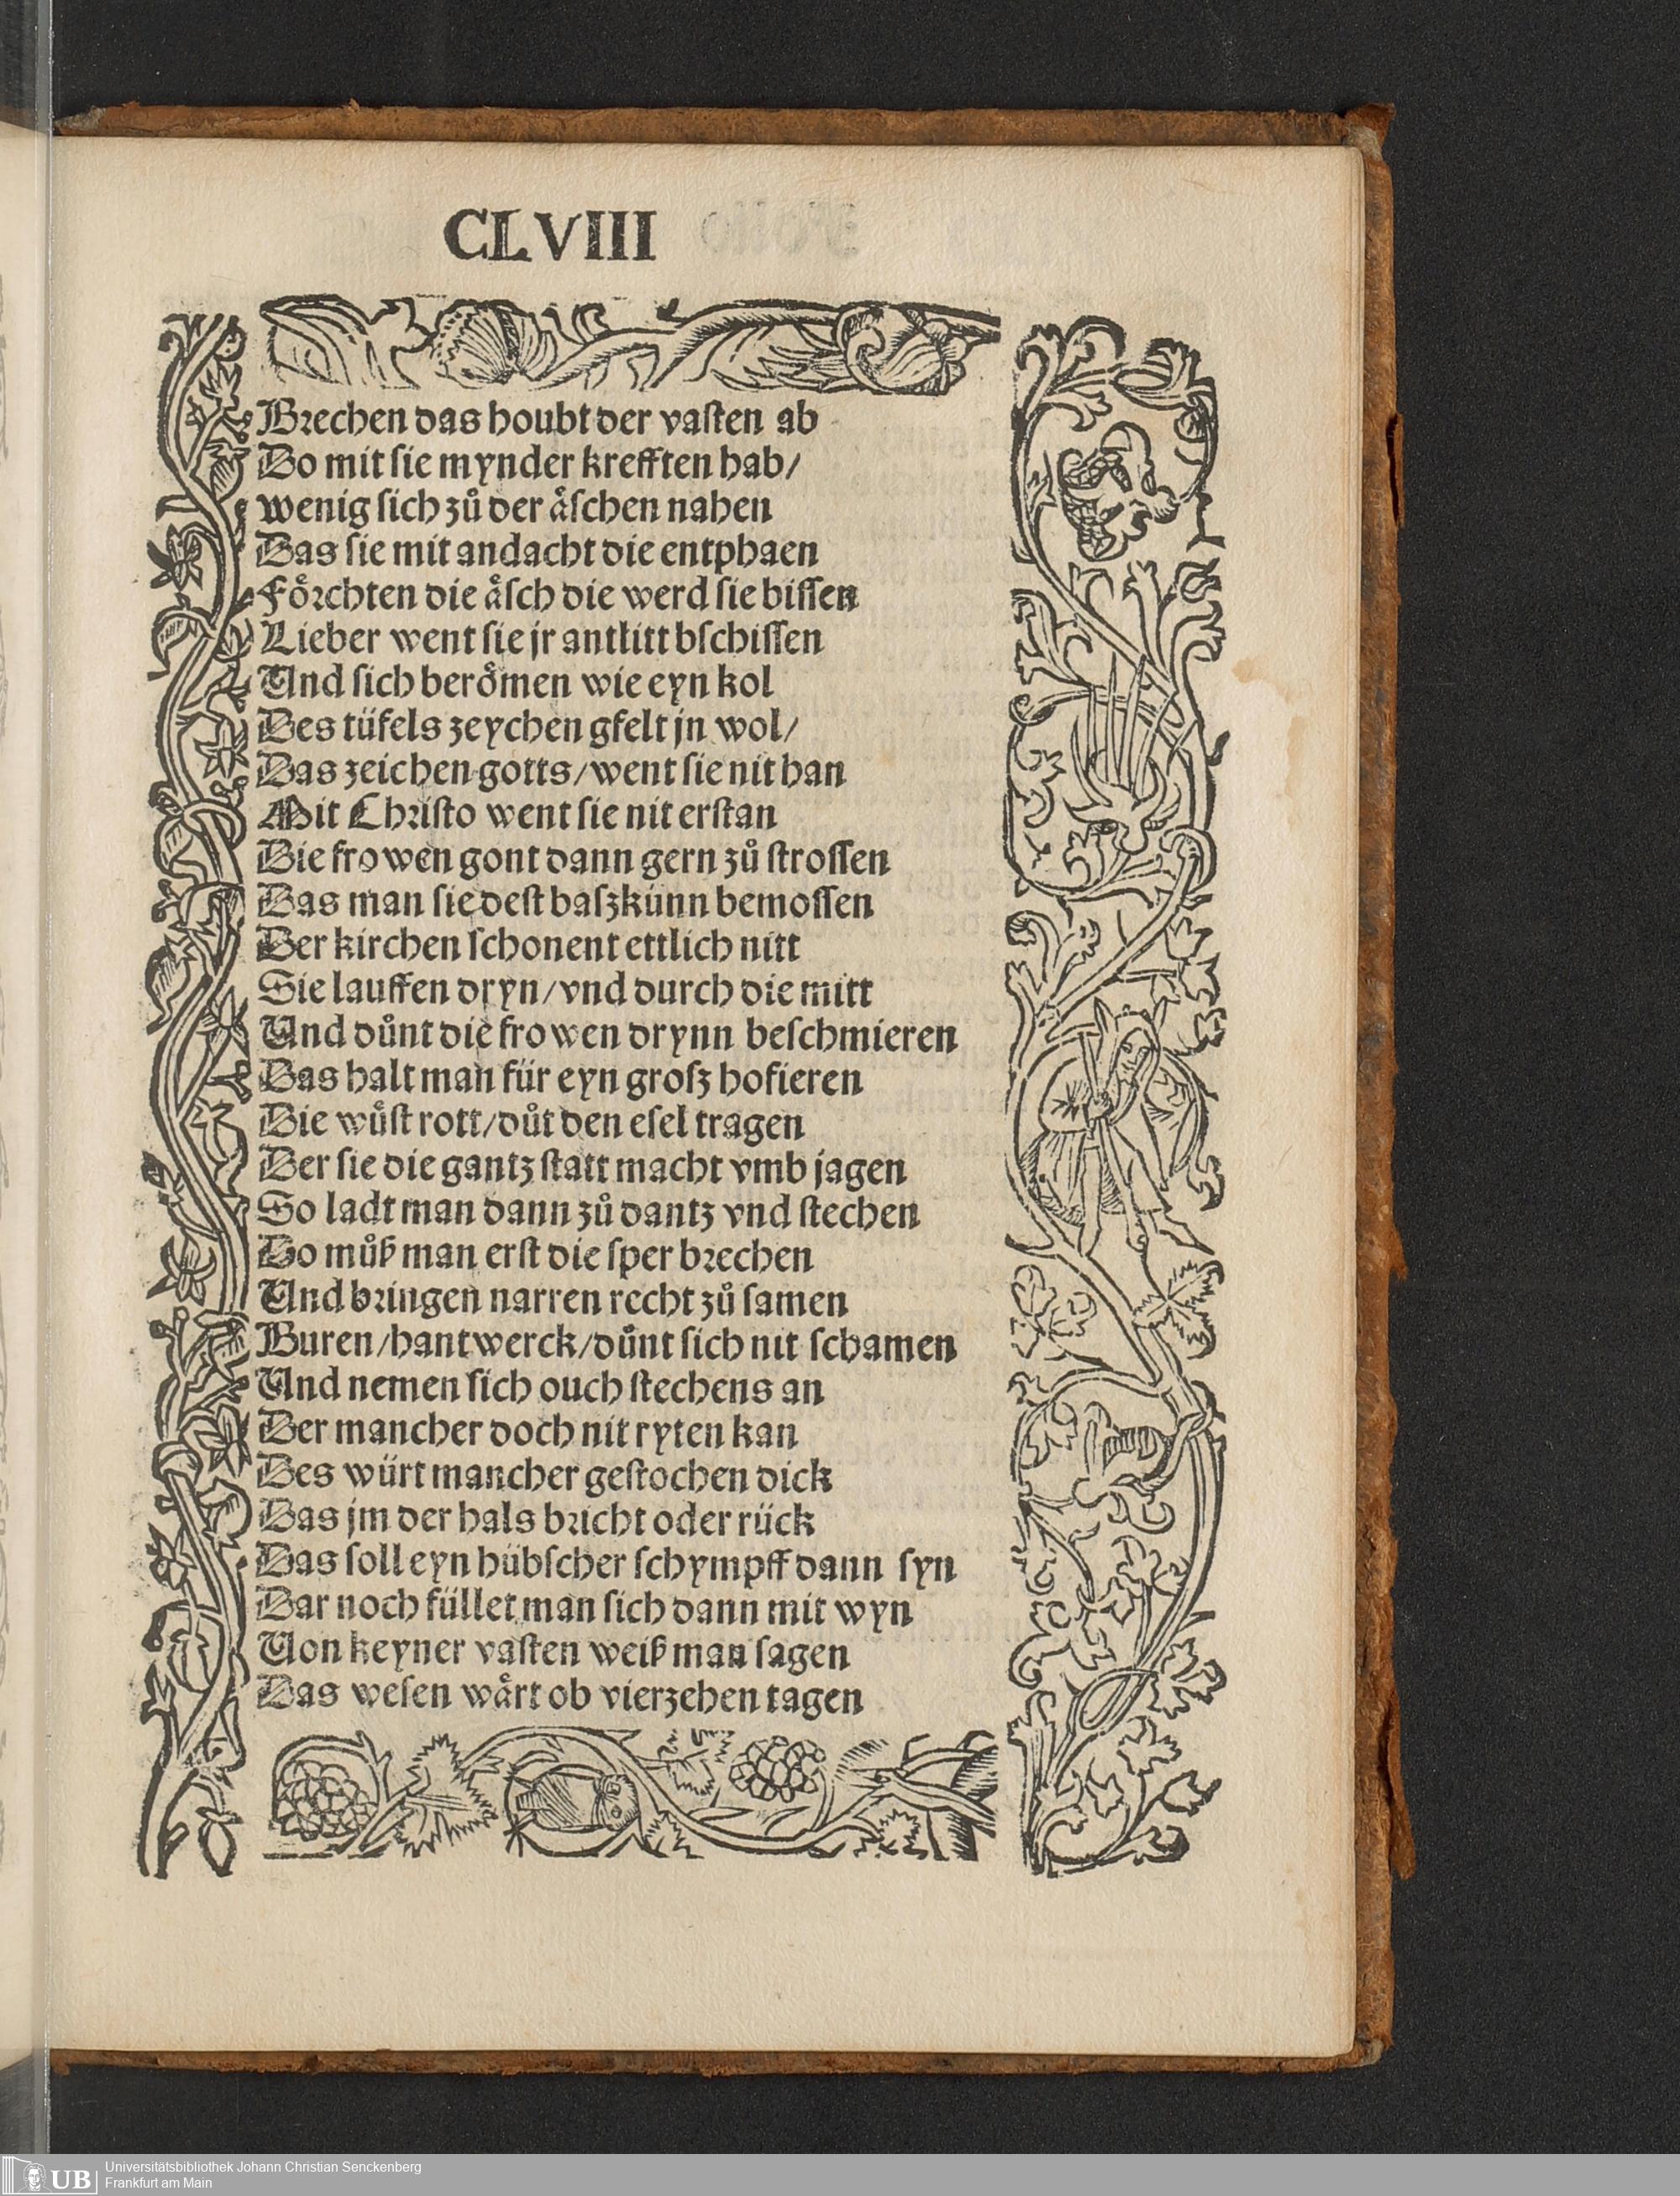 CLVIII
Brechen das houbt der vaſten ab
Do mit ſie mynder krefften hab/
wenig ſich zuͦ der aͤſchen nahen
Das ſie mit andacht die entphaen
Foͤrchten die aͤſch die werd ſie biſſen
Lieber went ſie jr antlitt bſchiſſen
Und ſich beroͤmen wie eyn kol
Des tüfels zeychen gfelt jn wol/
Das zeichen gotts/went ſie nit han
Mit Chriſto went ſie nit erſtan
Die frowen gont dann gern zuͦ ſtroſſen
Das man ſie deſt baſz künn bemoſſen
Der kirchen ſchonent ettlich nitt
Sie lauffen dryn/vnd durch die mitt
Und duͦnt die frowen drynn beſchmieren
Das halt man für eyn groſz hofieren
Die wuͦſt rott/duͦt den eſel tragen
Der ſie die gantz ſtatt macht vmb jagen
So ladt man dann zuͦ dantz vnd ſtechen
Do muͦß man erſt die ſper brechen
Und bringen narren recht zuͦ ſamen
Buren/hantwerck/duͦnt ſich nit ſchamen
Und nemen ſich ouch ſtechens an
Der mancher doch nit ryten kan
Des würt mancher geſtochen dick
Das jm der hals bricht oder rück
Das ſoll eyn hübſcher ſchympff dann ſyn
Dar noch füllet man ſich dann mit wyn
Von keyner vaſten weiß man ſagen
Das weſen waͤrt ob vierzehen tagen
UB
Universitätsbibliothek Johann Christian Senckenberg
Frankfurt am Main